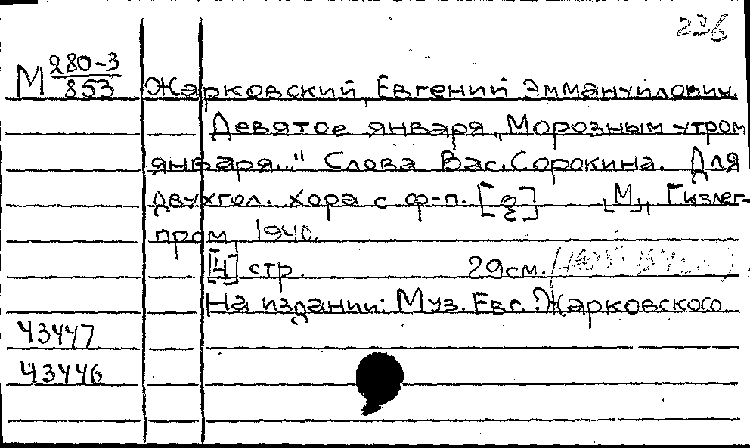 236
М 280-3
853
Жарковский, Евгений Эммануилович.
Девятое января „Морозным утром
января..." Слова Вас. Сорокина. Для
двухгол. хора с ф-п. [g] „М„ Гизлег-
пром, 1940.
[4] стр. 29см.
На издании: Муз. Евг. Жарковского.
43447
43446